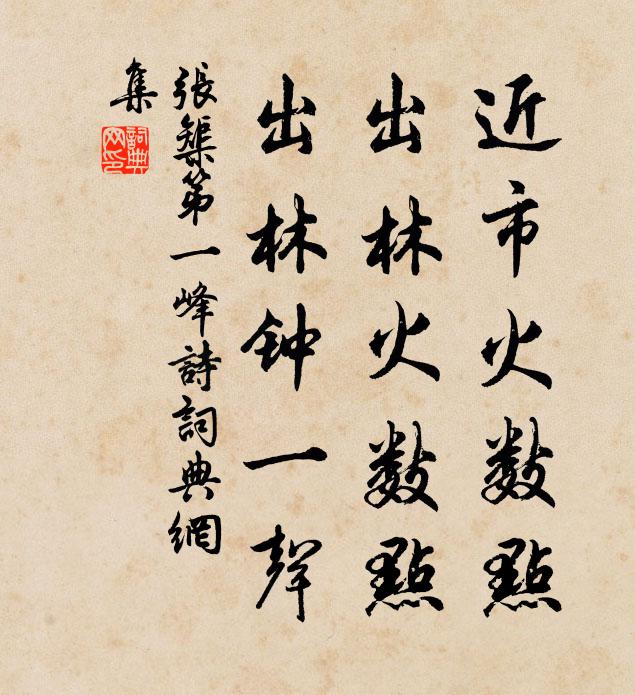 近市火数點
出林火数點
出林钟一聲
張榘第一峰詩詞典網
集
詞典網印